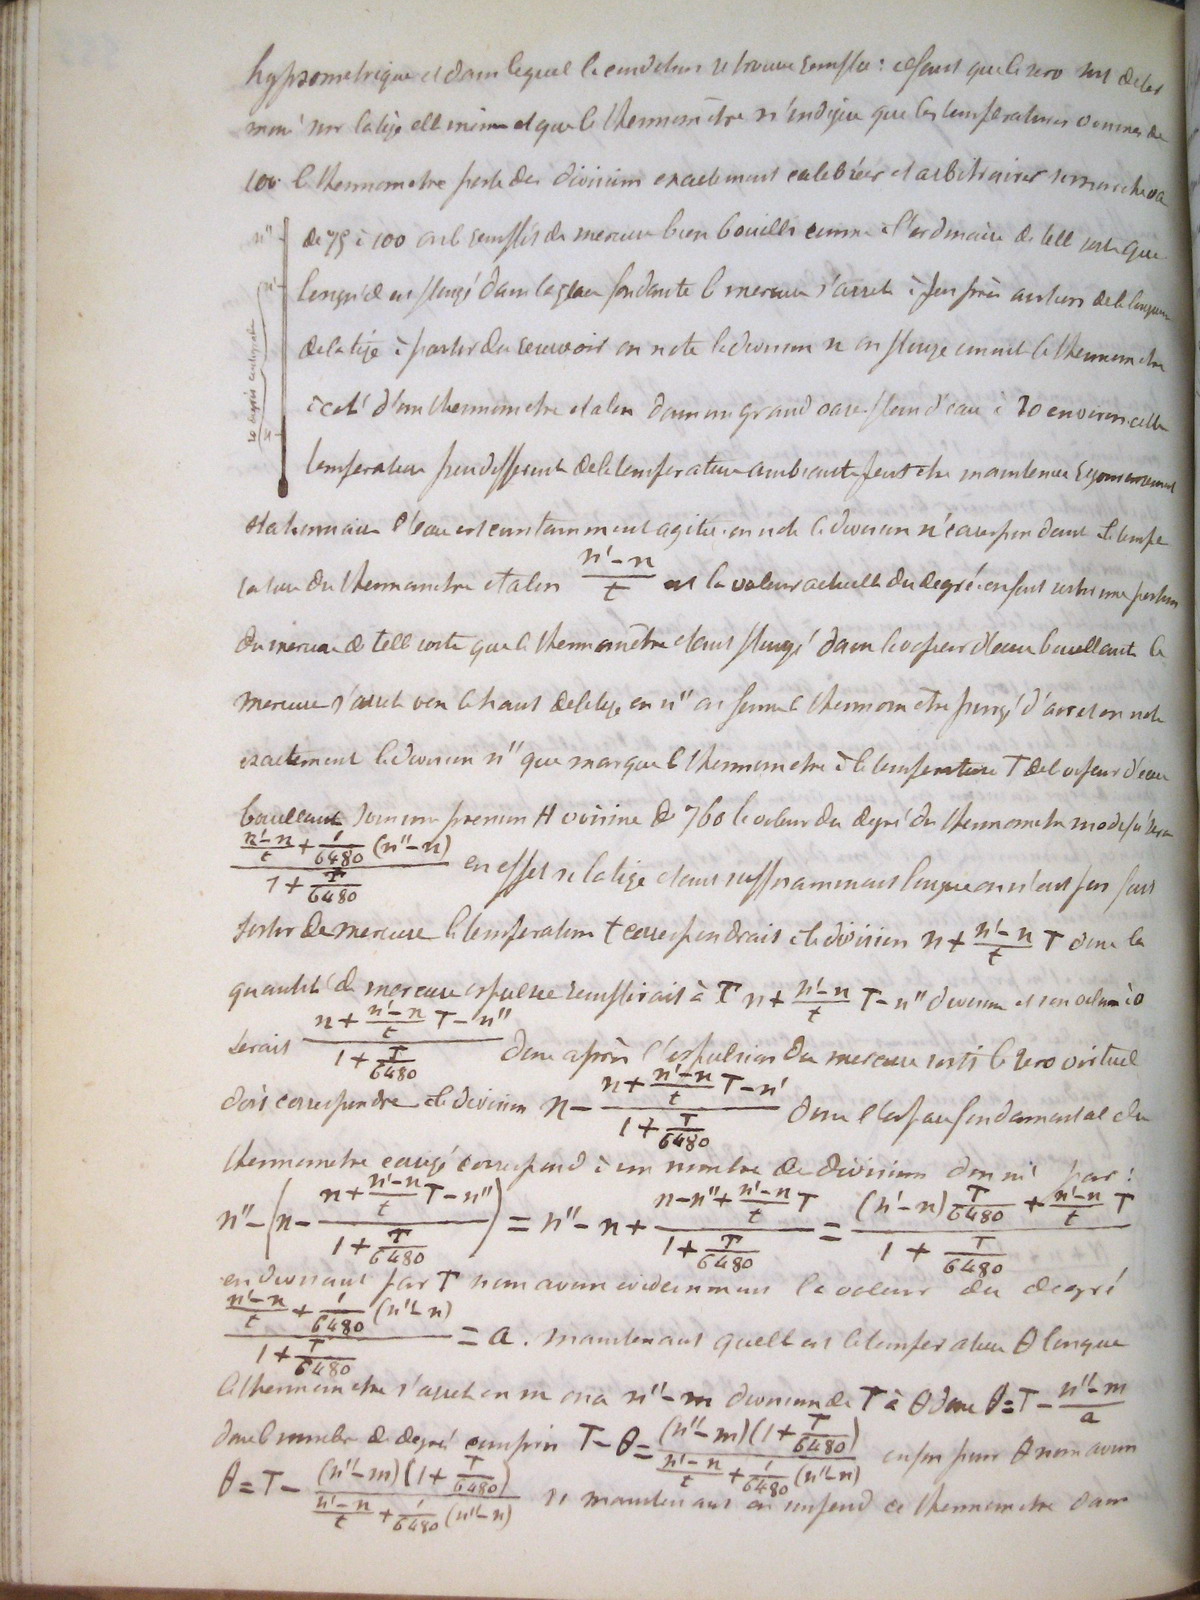 hypsometrique et dans lequel le conditions se trouve remplie : il faut que le zero soit deter
miné sur la tige elle meme et que le thermomètre n'indique que les temperatures voisines de
100 le thermometre porte des divisions exactement calibrées et arbitraires sa marche va
de 75 à 100 on le remplit de mercure bien bouilli comme à l'ordinaire de tell sorte que
lorsqu'il est plongé dans la glace fondante le mercure s'arret à peu près au tiers de la longueur
de la tige à partir du reservoir on note la division n on plonge ensuite le thermometre
à coté d'un thermometre etalon dans un grand vase plein d'eau à 20 environ cette
temperature peu differente de la temperature ambiante peut etre maintenue rigoureusement
stationnaire l'eau est constamment agitée on note la division n' correspondant à la tempe
rature du thermometre etalon n'-n/t est la valeur actuelle du degré on fait sortir une portion
du mercure de tell sorte que le thermomètre etant plongé dans la vapeur d'eau bouillante le
mercure s'arret vers le haut de la tige en n'' on ferme le thermometre purgé d'air et on note
exactement la division n'' que marque le thermometre à la temperature T de la vapeur d'eau
bouillant sous une pression H voisine de 760 la valeur du degré du thermometre modifié sera
(n'-n/t + 1/6480 (n''-n)) / (1 + T/6480) en effet si la tige etait suffisamment longue on n'eut pas fait
sortir de mercure la temperature T correspondrait à la division n + n'-n/t T donc la
quantité de mercure expulsée remplirait à T n + n'-n/t T - n'' division et son volume à 0
serait (n + n'-n/t T - n'') / (1 + T/6480) donc après l'expulsion du mercure sorti le zero virtuel
doit correspondre à la division n - (n + n'-n/t T - n') / (1 + T/6480) donc l'espace fondamental du
thermometre corrigé correspond à un nombre de division donné par :
n'' - (n - (n + n'-n/t T - n'') / (1 + T/6480)) = n'' - n + (n - n'' + n'-n/t T) / (1 + T/6480) = ((n'-n) T/6480 + n'-n/t T) / (1 + T/6480)
en divisant par T nous avons evidemment la valeur du degré
(n'-n/t + 1/6480 (n''-n)) / (1 + T/6480) = a. maintenant quelle est la temperature θ lorsque
le thermometre s'arret en m on a n''-m division de T à θ donc θ = T - n''-m/a
donc le nombre de degré compris T - θ = (n''-m)(1 + T/6480) / (n'-n/t + 1/6480 (n''-n)) enfin pour θ nous avons
θ = T - (n''-m)(1 + T/6480) / (n'-n/t + 1/6480 (n''-n)) si maintenant on suspend ce thermometre dans
n''
n'
20 degrés
n